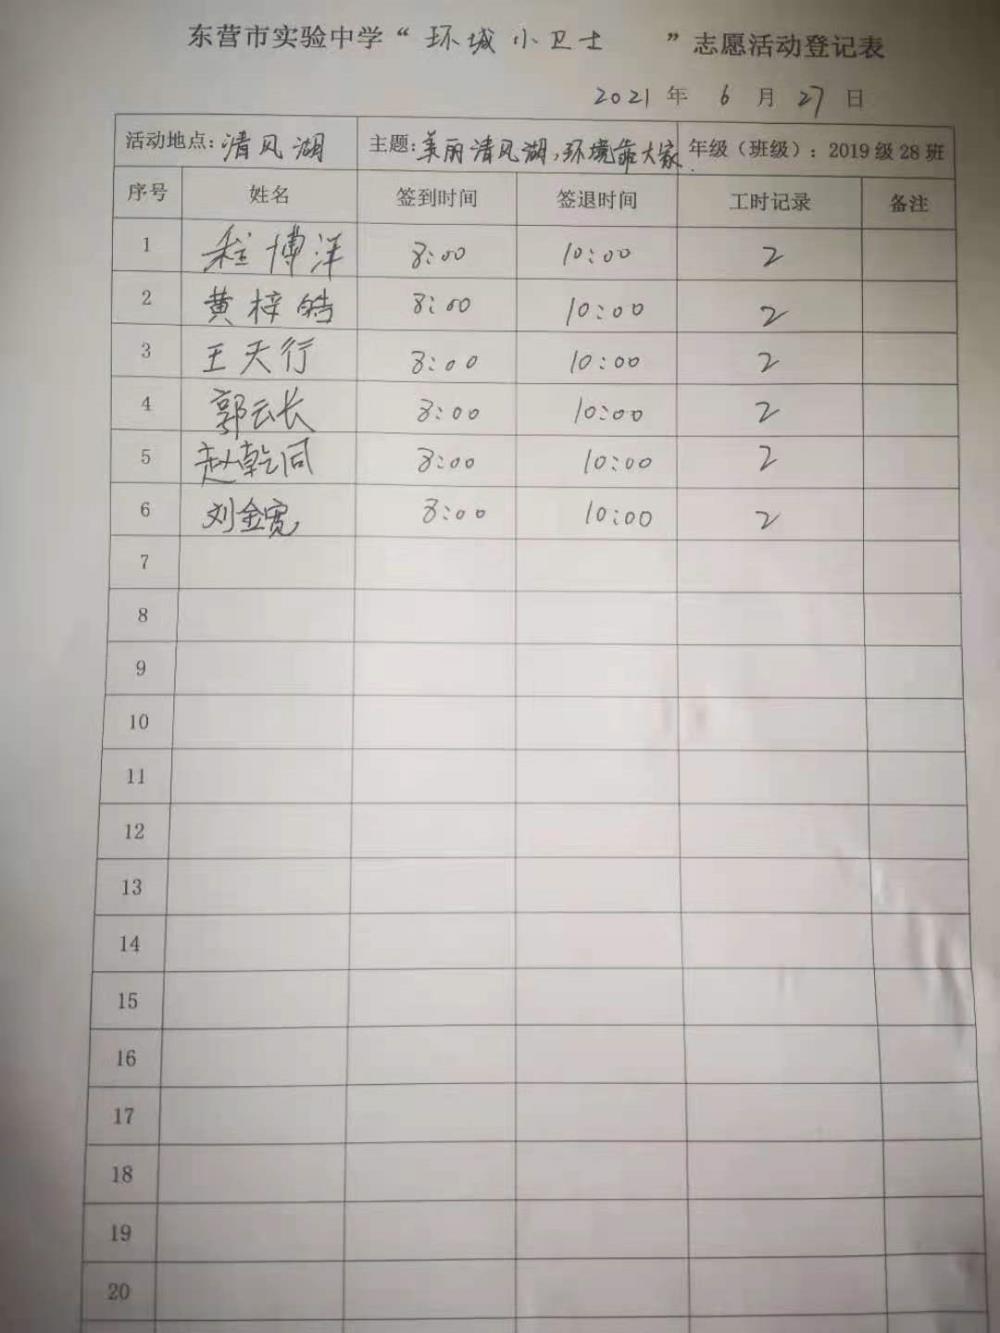 东营市实验中学“环城小卫士”志愿活动登记表
2021年6月27日
活动地点:清风湖 主题:美丽清风湖,环境靠大家. 年级（班级）：2019级28班
序号 姓名 签到时间 签退时间 工时记录 备注
1 程博洋 8:00 10:00 2
2 黄梓皓 8:00 10:00 2
3 王天行 8:00 10:00 2
4 郭云长 8:00 10:00 2
5 赵乾同 8:00 10:00 2
6 刘金宽 8:00 10:00 2
7
8
9
10
11
12
13
14
15
16
17
18
19
20